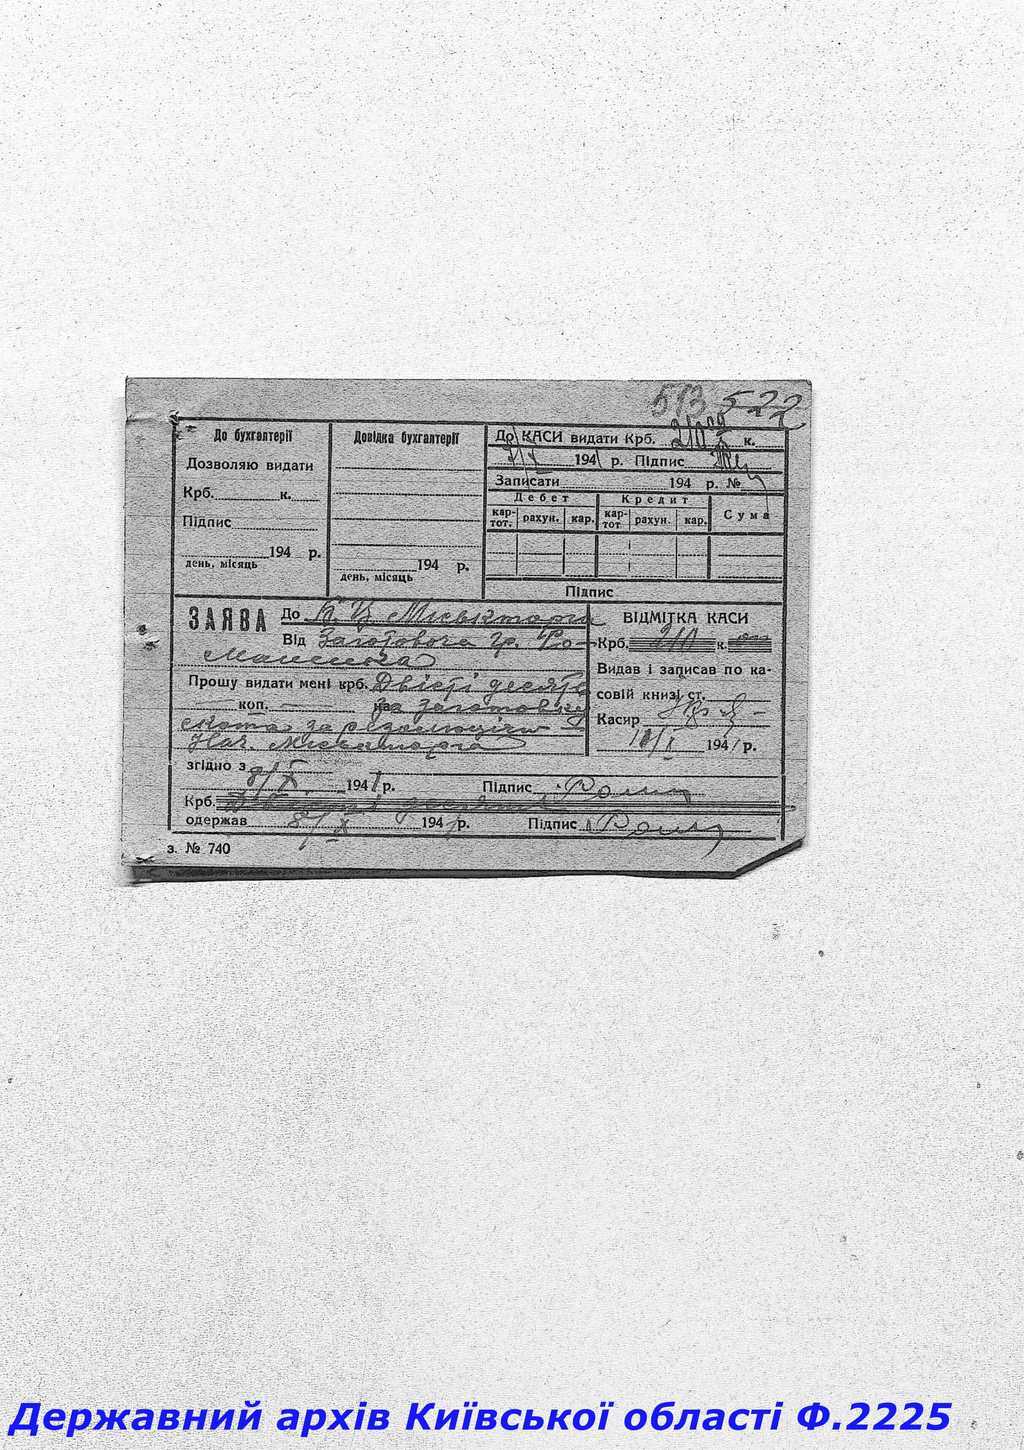 513 522
До бухгалтерії
Дозволяю видати
Крб. к.
Підпис
194 р.
день, місяць
Довідка бухгалтерії
194 р.
день, місяць
До КАСИ видати Крб. 210 к.
194 р. Підпис
Записати 194 р. №
Дебет Кредит Сума
кар-тот. рахун. кар. кар-тот рахун. кар.
Підпис
ЗАЯВА До Міськторга
Від Заготовача гр. Ро-
маненка
Прошу видати мені крб. Двісті десять
коп. на заготовку
скота за резолюцією
Нач. Міськторга
згідно з
8/X 1941 р. Підпис
Крб. Двісті десять
одержав 8/X 1941 р. Підпис
ВІДМІТКА КАСИ
Крб. 210 к.
Видав і записав по ка-
совій книзі ст.
Касир
10/X 1941 р.
з. № 740
Державний архів Київської області Ф.2225